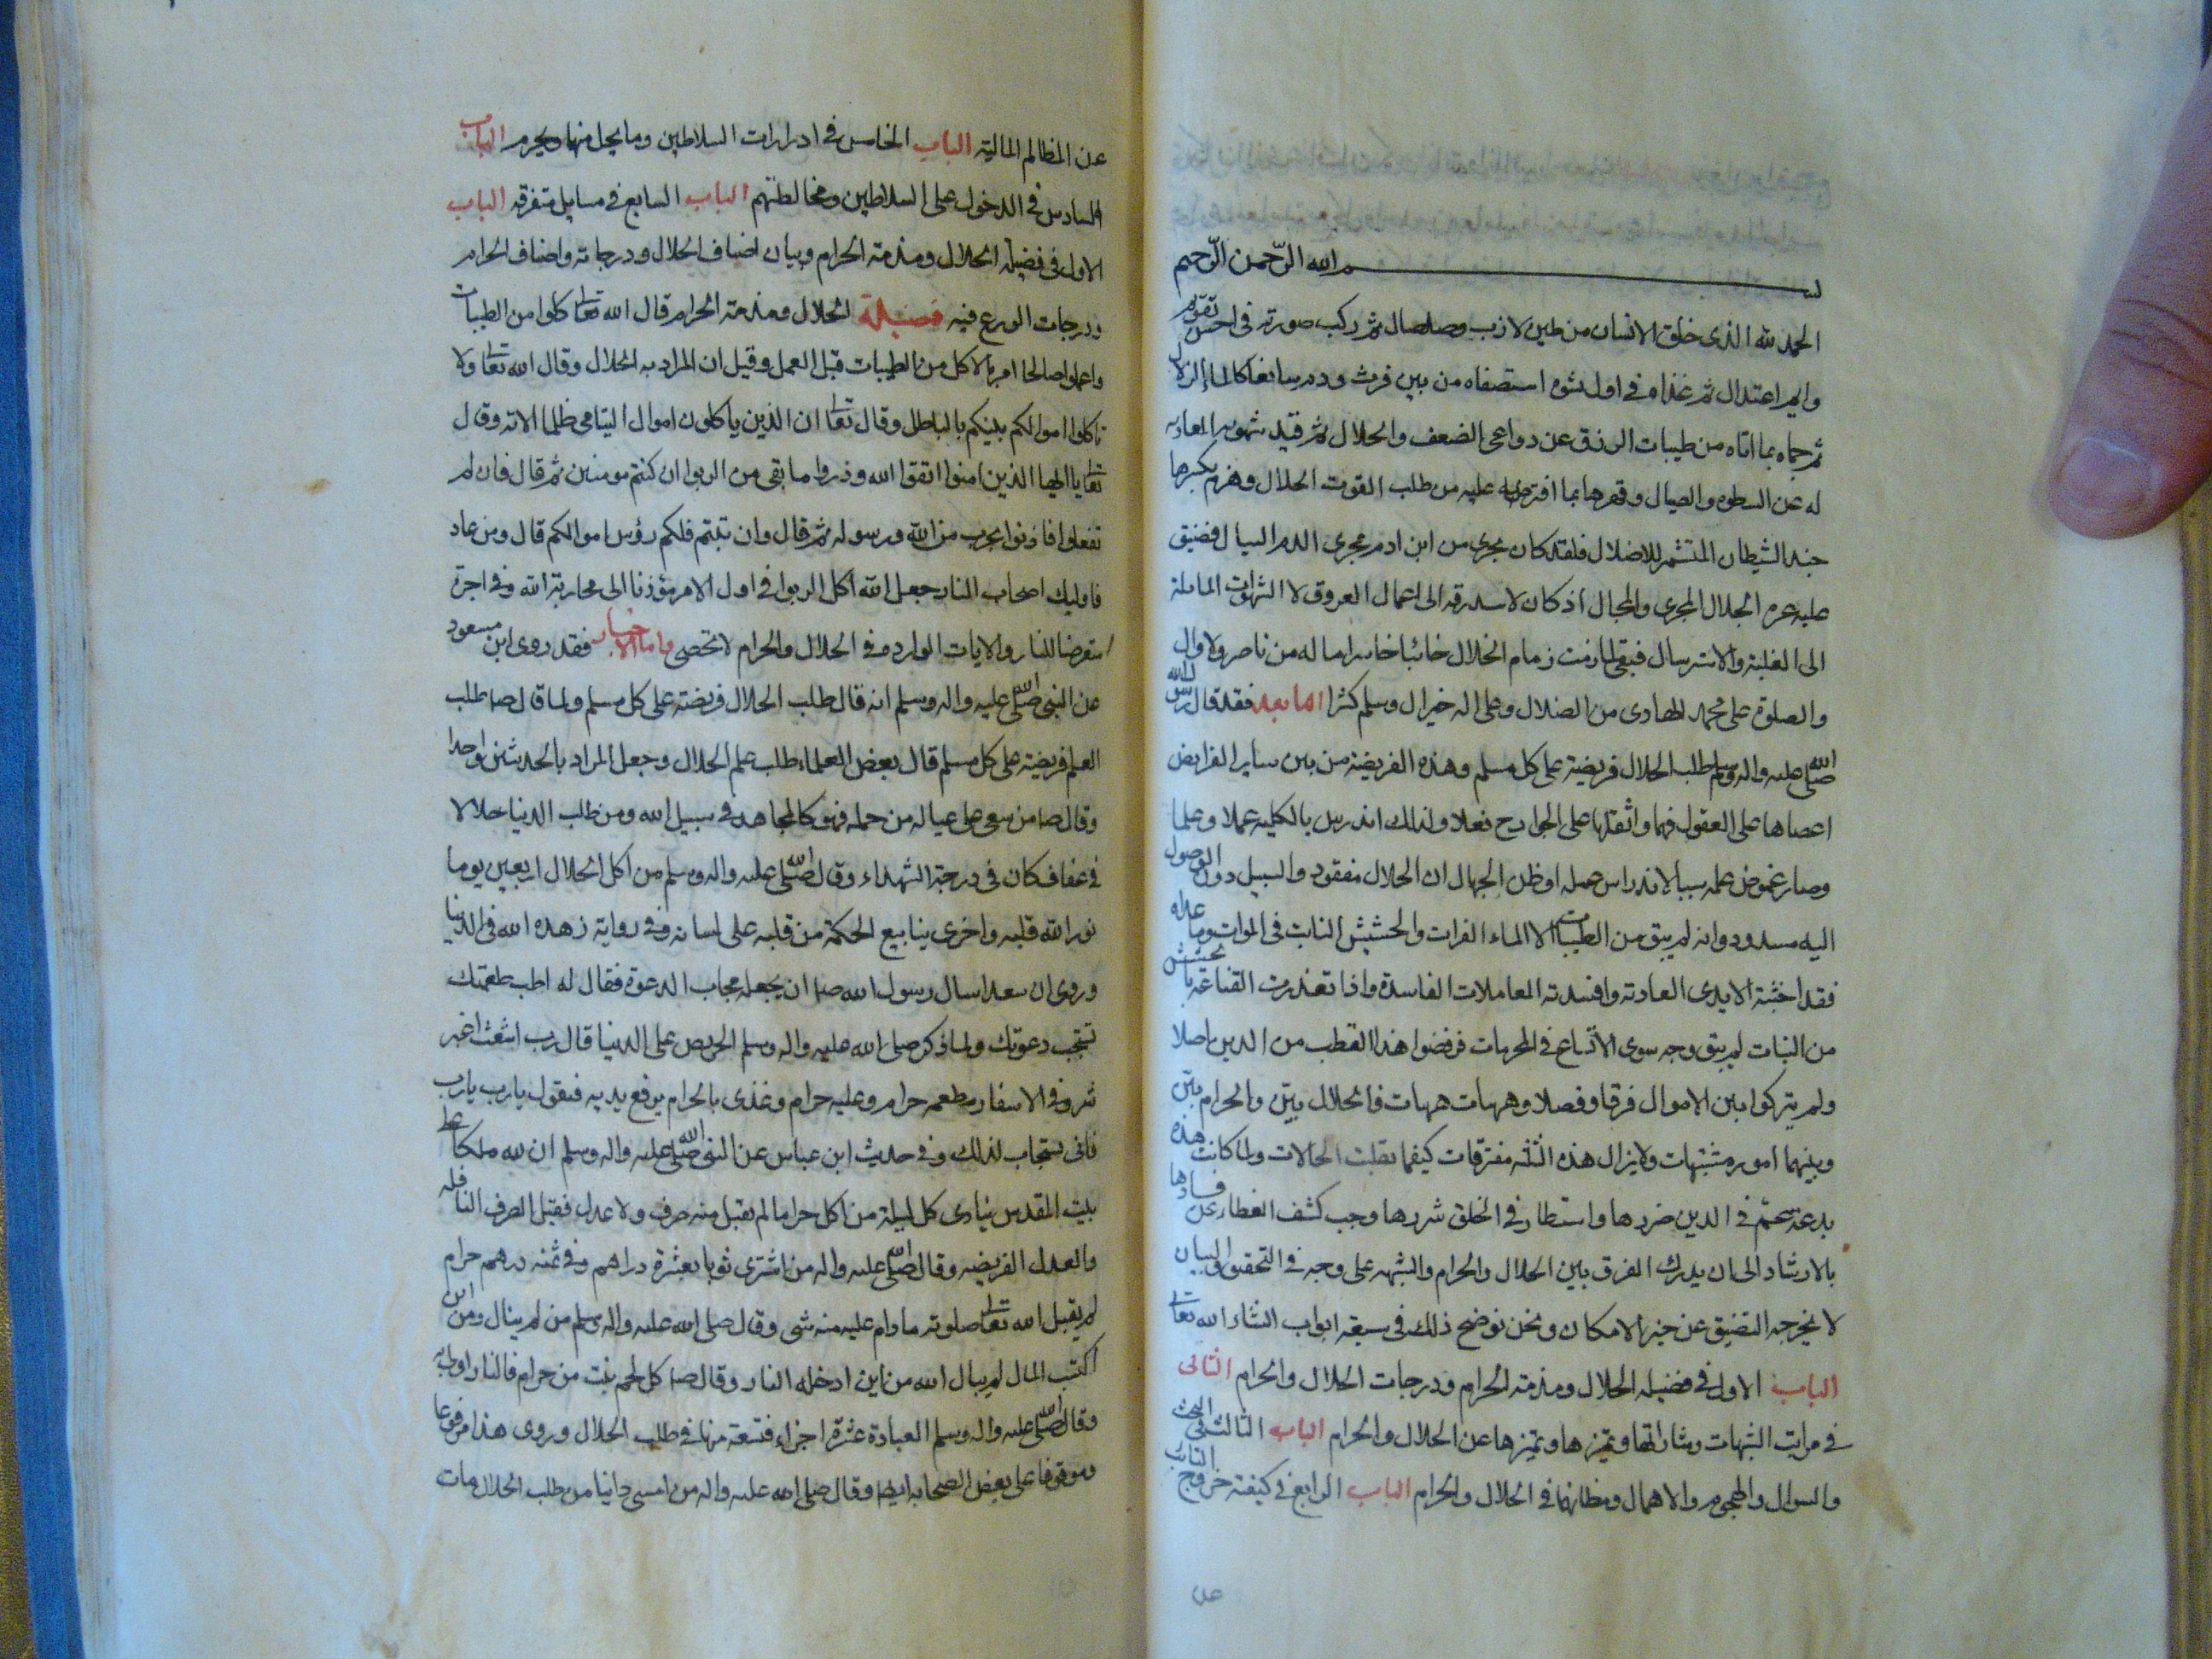 بسم الله الرّحمن الرّحيم
الحمد لله الذى خلق الانسان من طين لازب وصلصال ثم ركب صورته فى احسن تقويم
واتم اعتدال ثم غذاه فى اول نشوه استصفاه من بين فرث ودم سايغا كالماء الزلال
ثم حماه بما اتاه من طيبات الرزق عن دواعى الضعف والحلال ثم قيد شهوته المعاديه
له عن السطوه والصيال وقهرها بما افترضه عليه من طلب القوت الحلال وهزم بكسرها
جند الشيطان المتشمر للاضلال فلقد كان يجرى من ابن ادم مجرى الدم السيال فضيق
عليه عزم الحلال المجرى والمجال اذ كان لا سدرقه الى اعمال العروق لا الشهوات المايلة
الى الغلبة والاسترسال فبقى لما زمت زمام الحلال خائبا خاسرا ما له من ناصر ولا وال
والصلوة على محمد الهادى من الضلال وعلى اله خير ال وسلم كثرا اما بعد فقد قال رسول الله
صلى الله عليه واله وسلم طلب الحلال فريضية على كل مسلم وهذه الفريضية من بين ساير الفرايض
اعصاها على العقول فهما واثقلها على الجوارح فعلا ولذلك اندرس بالكليه عملا وعلما
وصار غموض عمله سببا لاندراس عمله اوظن الجهال ان الحلال مفقود والسبيل دون الوصول
اليه مسدود وانه لم يبق من الطيبات الا الماء الفرات والحشيش النابت فى الموات وما عداه
فقد اخبثه الايدى العادته وافسدته المعاملات الفاسدة واذا تعذرت القناعة بالحشيش
من النبات لم يبق وجه سوى الاتساع فى المحرمات فرفضوا هذا القطب من الدين اصلا
ولم يتركوا بين الاموال فرقا وفصلا وهيهات هيهات فالحلال بيّن والحرام بيّن
وبينهما امور مشتبهات ولا يزال هذه الثلثه مفترقات كيفما تقلبت الحالات ولما كانت هذه
بدعة سحتم فى الدين ضررها واستطار فى الخلق شررها وجب كشف الغطاء عن فسادها
بالارشاد الى ان يدرك الفرق بين الحلال والحرام والشبهه على وجه فى التحقيق والبيان
لا يخرجه التضيق عن حيز الامكان ونحن نوضح ذلك فى سبعه ابواب انشاء الله تعالى
الباب الاول فى فضيله الحلال ومذمته الحرام ودرجات الحلال والحرام الثانى
فى مراتب الشبهات ومثاراتها وتميزها وتميزها عن الحلال والحرام الباب الثالث فى البحث
والسوال والهجوم والاهمال ومظانهما فى الحلال والحرام الباب الرابع فى كيفية خروج التائب
عن المظالم المالية الباب الخامس فى ادرارات السلاطين وما يحل منها ويحرم الباب
السادس فى الدخول على السلاطين ومخالطتهم الباب السابع فى مسايل متفرقه الباب
الاول فى فضيلة الحلال ومذمته الحرام وبيان اصناف الحلال ودرجاته واصناف الحرام
ودرجات الورع فيه فضيلة الحلال ومذمته الحرام قال الله تعالى كلوا من الطيبات
واعملوا صالحا امر بالاكل من الطيبات قبل العمل وقيل ان المراد به الحلال وقال الله تعالى ولا
تاكلوا اموالكم بينكم بالباطل وقال تعالى ان الذين ياكلون اموال اليتامى ظلما الاته وقال
تعالى يا ايها الذين امنوا اتقوا الله وذروا ما بقى من الربوا ان كنتم مومنين ثم قال فان لم
تفعلوا فاذنوا بحرب من الله ورسوله ثم قال وان تبتم فلكم رؤس اموالكم قال ومن عاد
فاوليك اصحاب النار جعل الله اكل الربوا فى اول الامر مؤذنا الى محاربة الله وفى اجرة
متعرضا للنار والايات الوارده فى الحلال والحرام لا تحصى واما الاخبار فقد روى ابن مسعود
عن النبى صلى الله عليه واله وسلم انه قال طلب الحلال فريضته على كل مسلم ولما قال صلعم طلب
العلم فريضية على كل مسلم قال بعض العلماء طلب علم الحلال وجعل المراد بالحديثين واحدا
وقال صلعم من سعى على عياله من حمله فهو كالمجاهد فى سبيل الله ومن طلب الدنيا حلالا
فى عفاف كان فى درجة الشهداء وقال صلى الله عليه واله وسلم من اكل الحلال اربعين يوما
نور الله قلبه واخرى ينابيع الحكمة من قلبه على لسانه وفى رواية زهده الله فى الدنيا
وروى ان سعدا سال رسول الله صلعم ان يجعله مجاب الدعوة فقال له اطب طعمتك
تستجب دعوتك ولما ذكر صلى الله عليه واله وسلم الحريص على الدنيا قال رب اشعث اغبر
شرد فى الاسفار مطعمه حرام وعليه حرام وغذى بالحرام يرفع يديه فيقول يا رب يا رب
فانى يستجاب لذلك وفى حديث ابن عباس عن النبى صلى الله عليه واله وسلم ان لله ملكا على
بيت المقدس ينادى كل ليلة من اكل حراما لم يقبل منه صرف ولا عدل فقيل الصرف النافله
والعدل الفريضه وقال صلى الله عليه واله من اشترى ثوبا بعشرة دراهم وفى ثمنه درهم حرام
لم يقبل الله تعالى صلوته ما دام عليه منه شى وقال صلى الله عليه واله وسلم من لم يبال ومن اين
اكتسب المال لم يبال الله من اين ادخله النار وقال صلعم كل لحم نبت من حرام فالنار اولى به
وقال صلى الله عليه واله وسلم العبادة عشرة اجزاء فتسعة منها فى طلب الحلال وروى هذا مرفوعا
وموقوفا على بعض الصحابه ايضا وقال صلى الله عليه واله من امسى دانيا من طلب الحلال مات